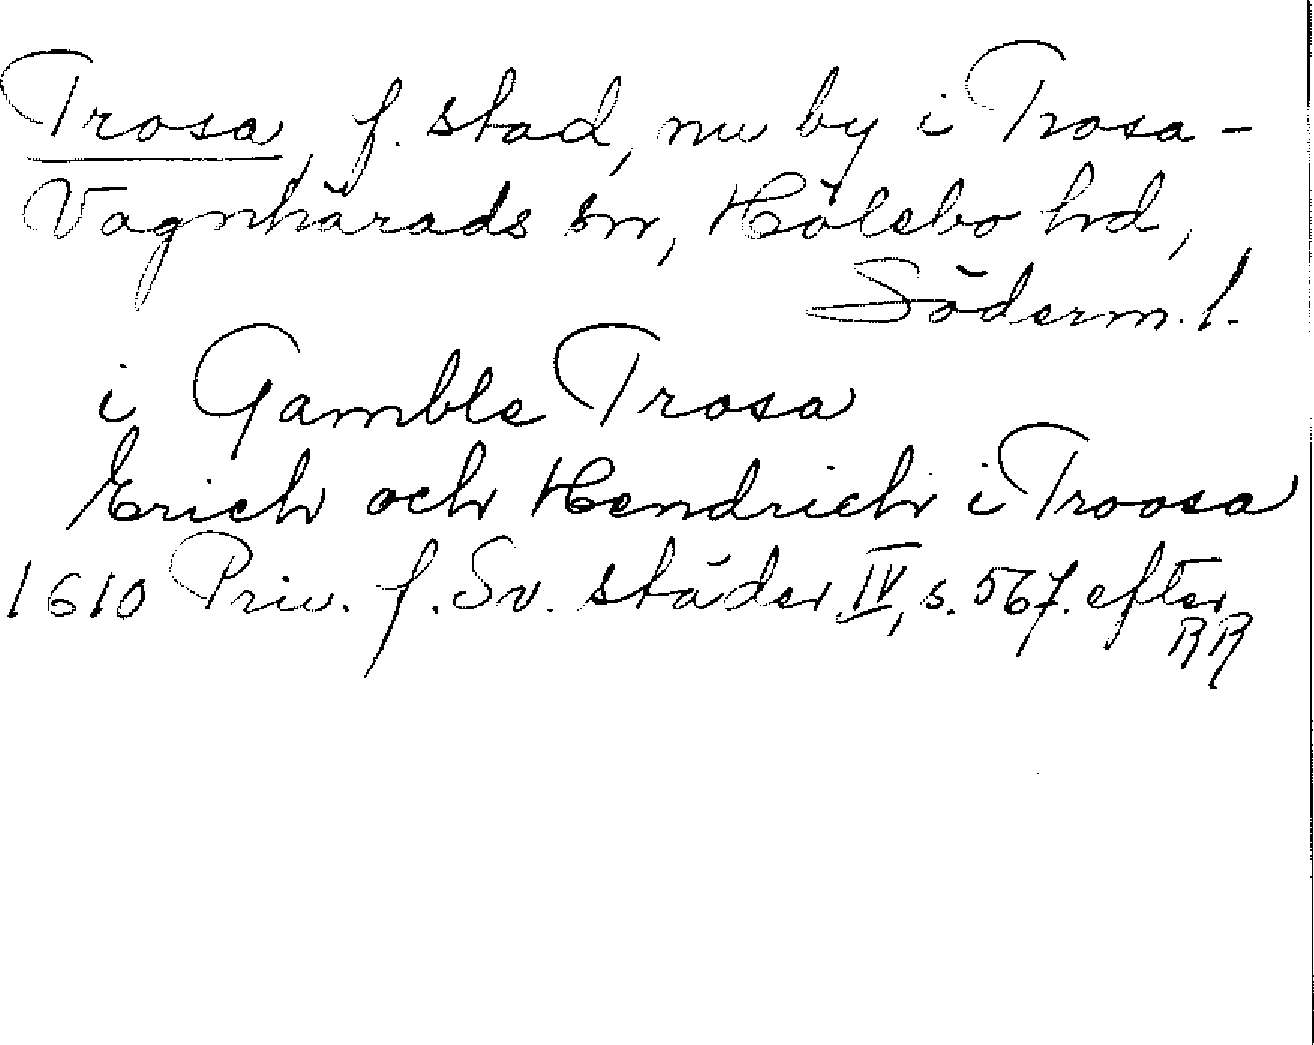 Trosa, f. stad, nu by i Trosa-
Vagnhärads sn, Hölebo hd,
Söderm. l.
i Gamble Trosa
Erich och Hendrich i Troosa
1610 Priv. f. Sv. städer IV, s. 567. efter
RR